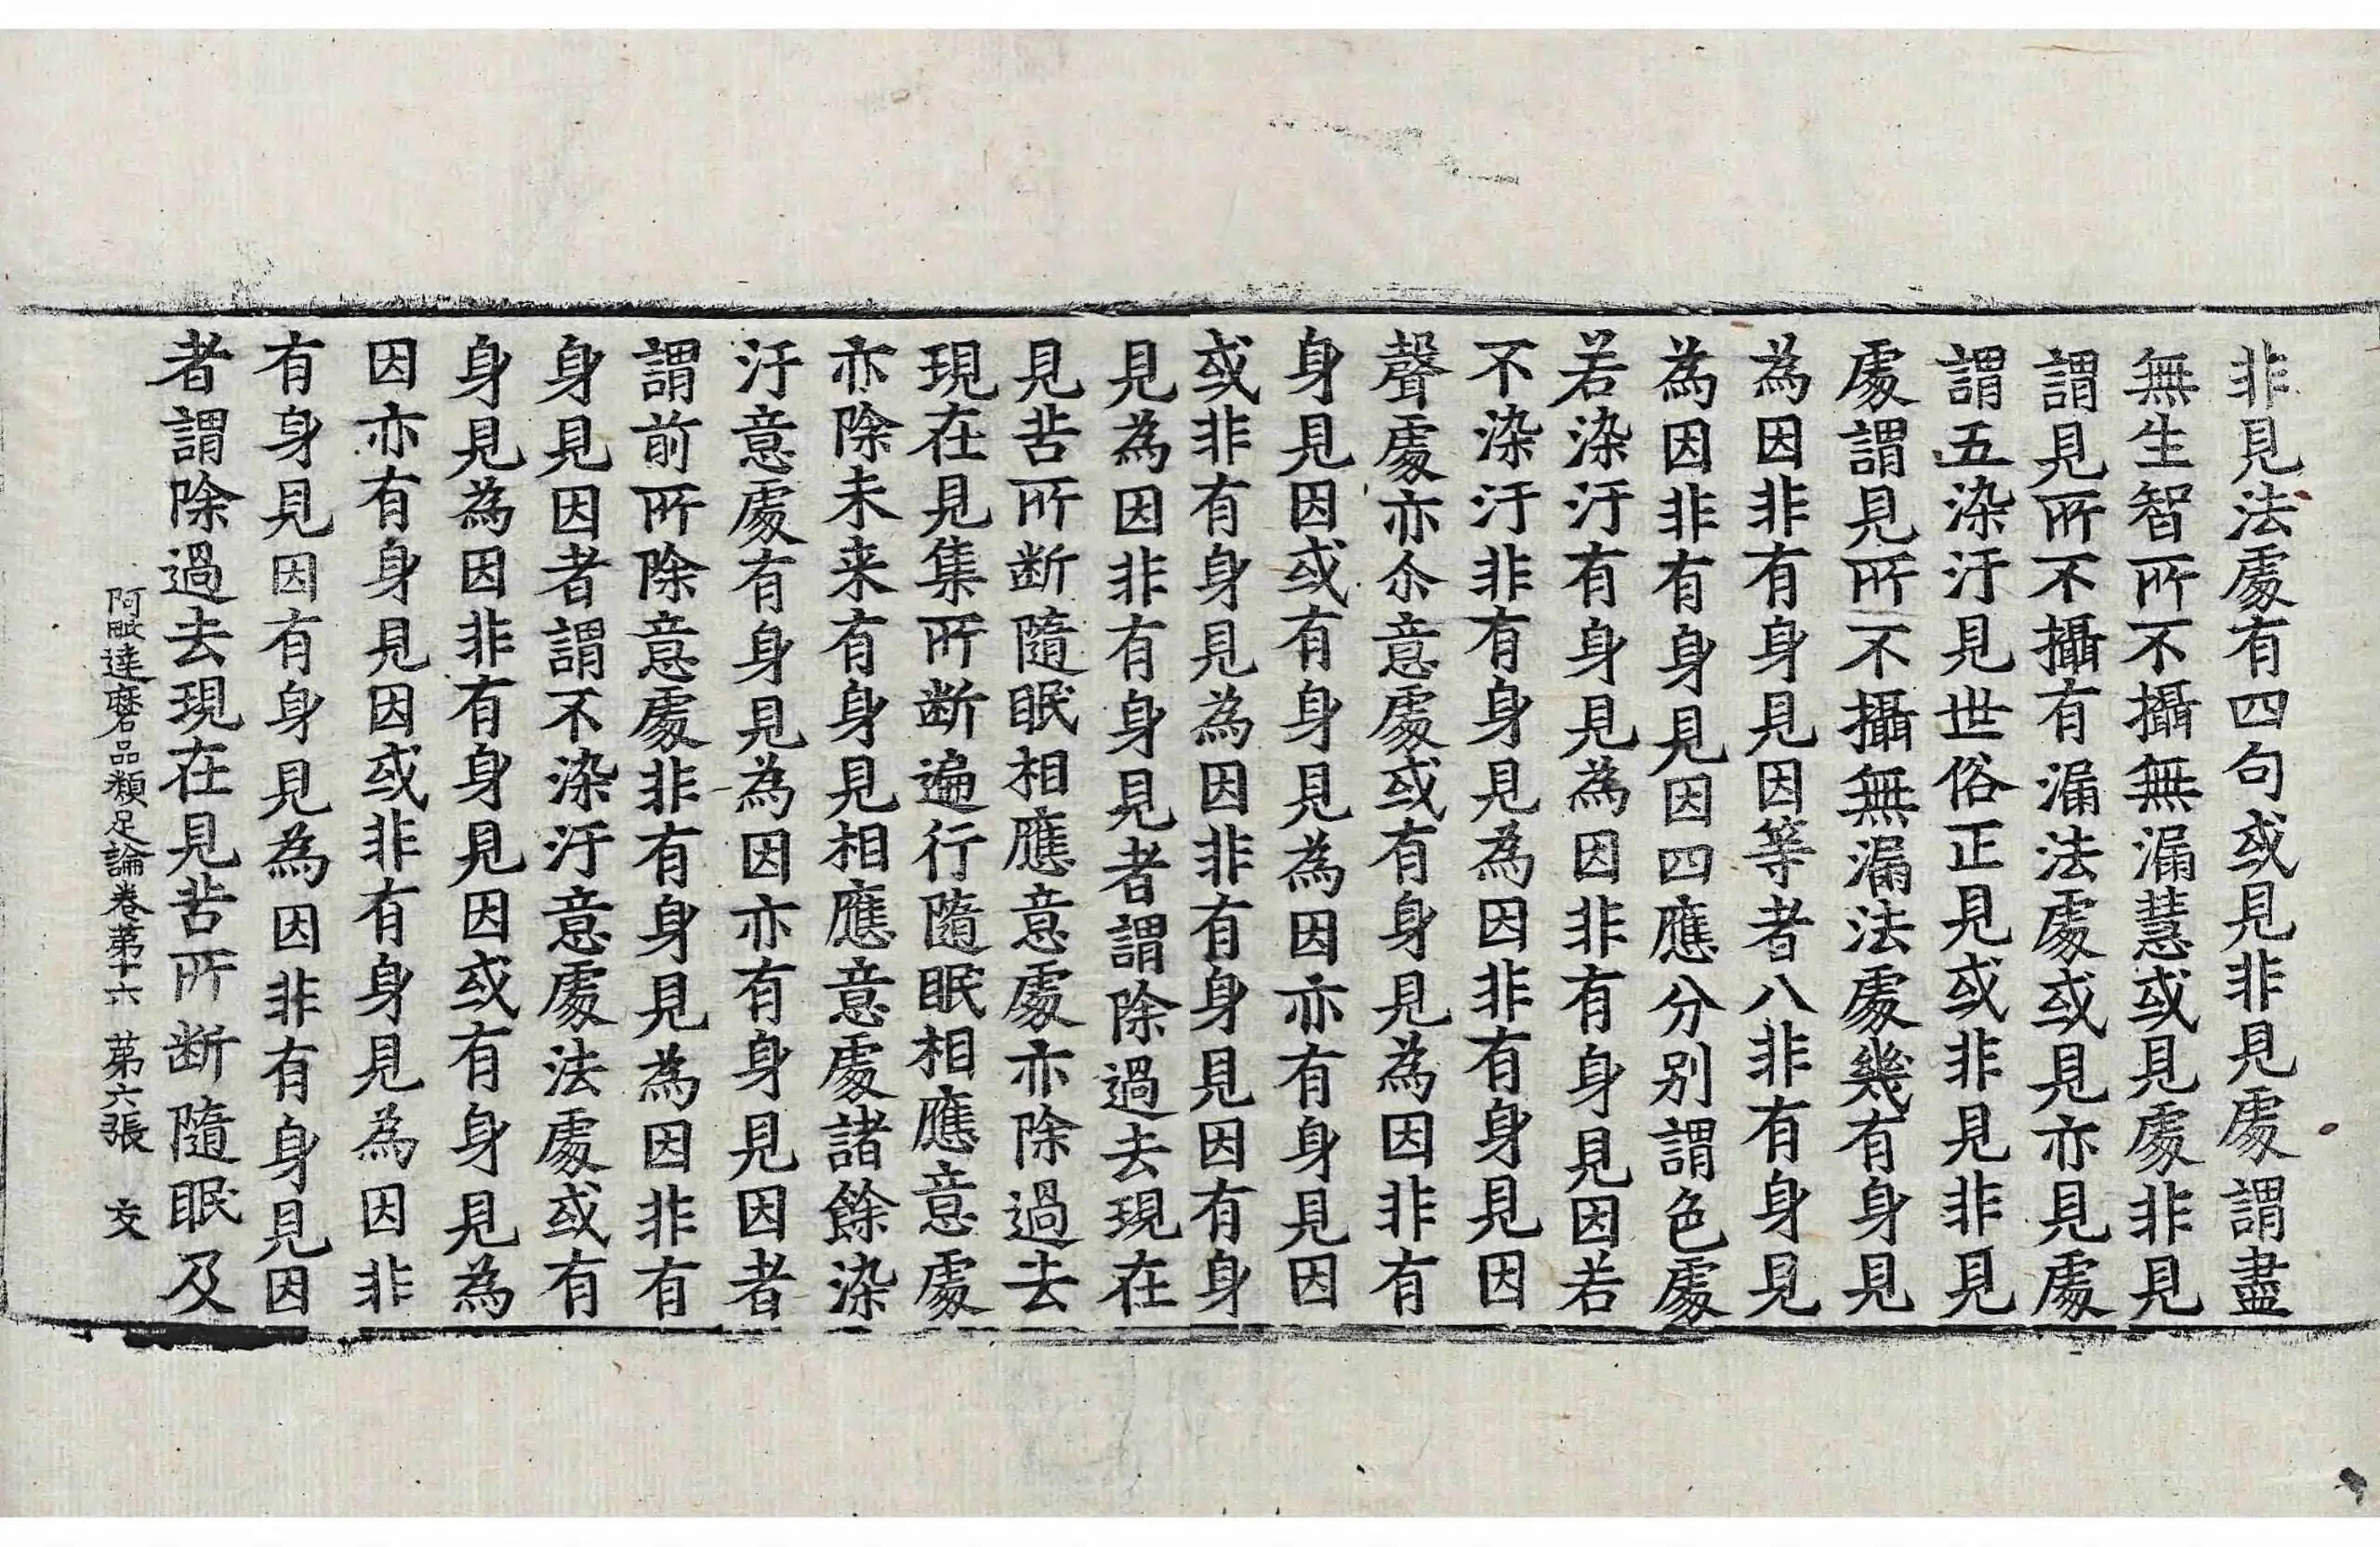 非見法處有四句或見非見處謂盡
無生智所不攝無漏慧或見處非見
謂見所不攝有漏法處或見亦見處
謂五染汙見世俗正見或非見非見
處謂見所不攝無漏法處幾有身見
為因非有身見因等者八非有身見
為因非有身見因四應分別謂色處
若染汙有身見為因非有身見因若
不染汙非有身見為因非有身見因
聲處亦尒意處或有身見為因非有
身見因或有身見為因亦有身見因
或非有身見為因非有身見因有身
見為因非有身見者謂除過去現在
見苦所断隨眠相應意處亦除過去
現在見集所断遍行隨眠相應意處
亦除未来有身見相應意處諸餘染
汙意處有身見為因亦有身見因者
謂前所除意處非有身見為因非有
身見因者謂不染汙意處法處或有
身見為因非有身見因或有身見為
因亦有身見因或非有身見為因非
有身見因有身見為因非有身見因
者謂除過去現在見苦所断隨眠及
阿毗達磨品類足論卷苐十六 苐六張 交